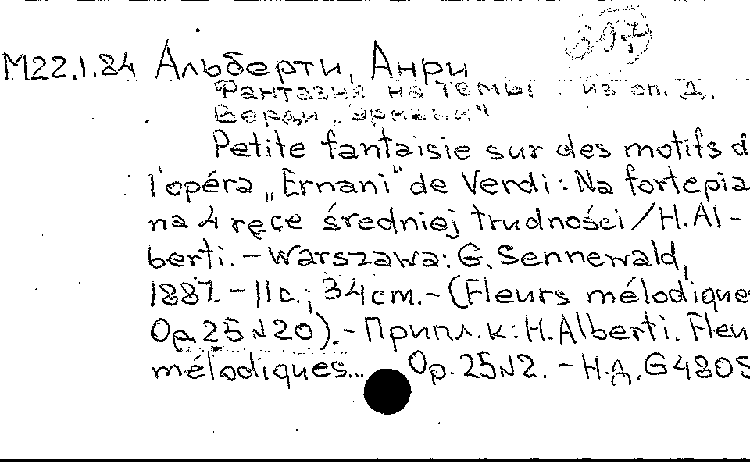 307
М22.1.84 Альберти, Анри
Фантазия на темы из оп. Д.
Верди „Эрнани"
Petite fantaisie sur des motifs d
l'opéra „Ernani" de Verdi: Na fortepia
na 4 ręce średniej trudności/H. Al-
berti. - Warszawa: G. Sennewald,
1887. - 11 с.; 34 cm. - (Fleurs mélodique
Op. 25 N 20). - Припл. к: H. Alberti. Fleu
mélodiques... Op. 25 N 2. - Н.д. G 480S